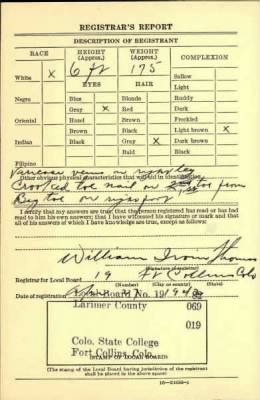 REGISTRAR'S REPORT
DESCRIPTION OF REGISTRANT
RACE HEIGHT (Approx.) WEIGHT (Approx.) COMPLEXION
White X 6 ft 175 Sallow
EYES HAIR Light
Negro Blue Blonde Ruddy
Gray X Red Dark
Oriental Hazel Brown Freckled
Brown Black Light brown X
Indian Black Gray X Dark brown
Bald Black
Filipino
Varicose veins on right leg
Other obvious physical characteristics that will aid in identification
Crooked toe nail on 2nd toe from
Big toe on right foot
I certify that my answers are true; that the person registered has read or has had
read to him his own answers; that I have witnessed his signature or mark and that
all of his answers of which I have knowledge are true, except as follows:
William Thomas
(Signature of registrar)
Registrar for Local Board 19 Ft Collins Colo
(Number) (City or county) (State)
Date of registration
Board No. 19
Larimer County 069
019
Colo. State College
Fort Collins, Colo.
(STAMP OF LOCAL BOARD)
(The stamp of the Local Board having jurisdiction of the registrant
shall be placed in the above space)